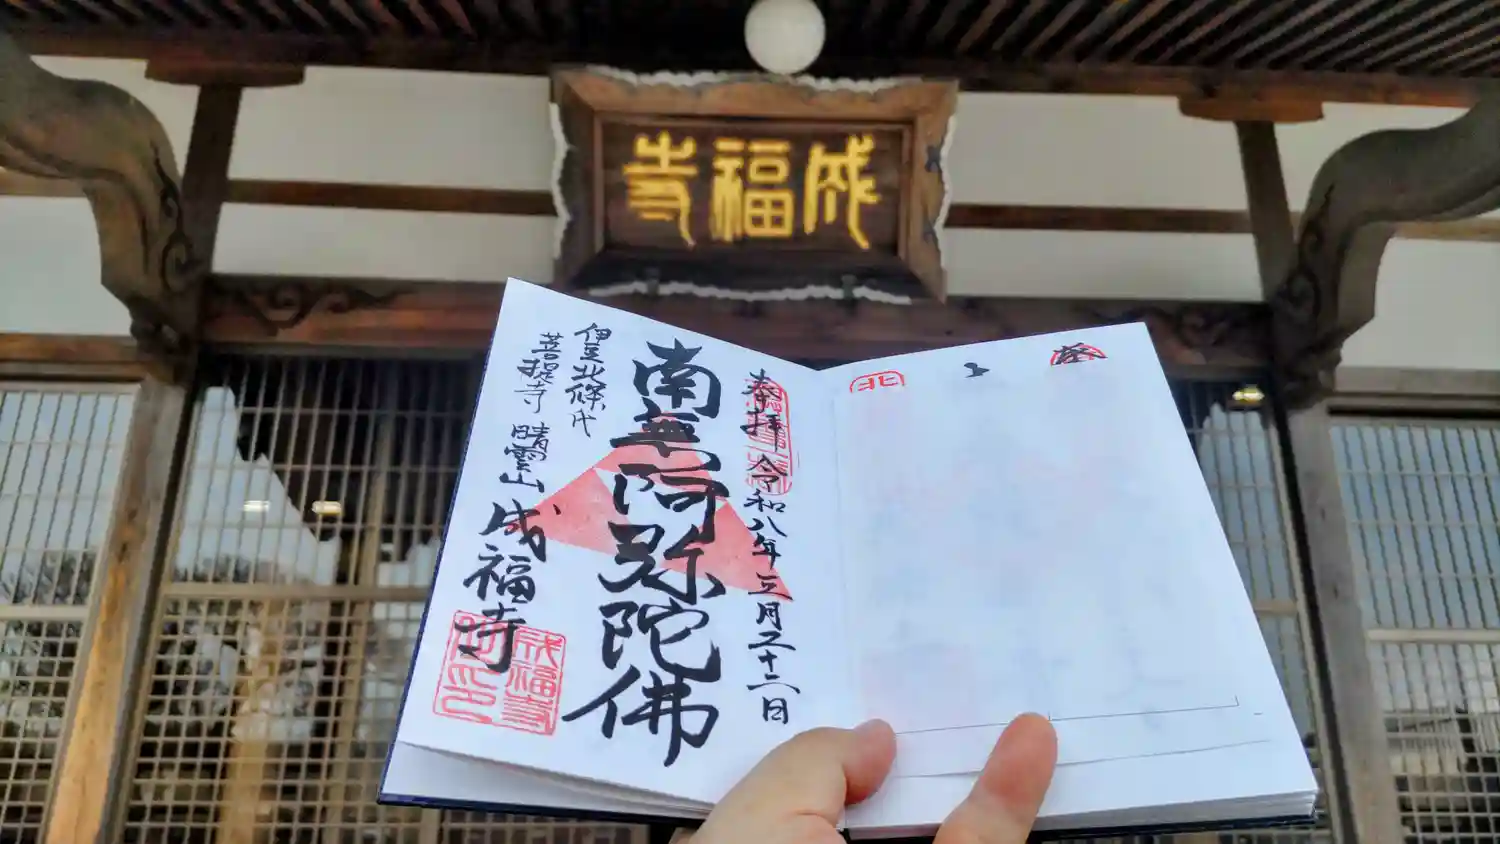 成福寺
奉拝 令和八年三月二十二日
南無阿弥陀佛
伊豆北條氏
菩提寺 晴雲山 成福寺
成福寺
北